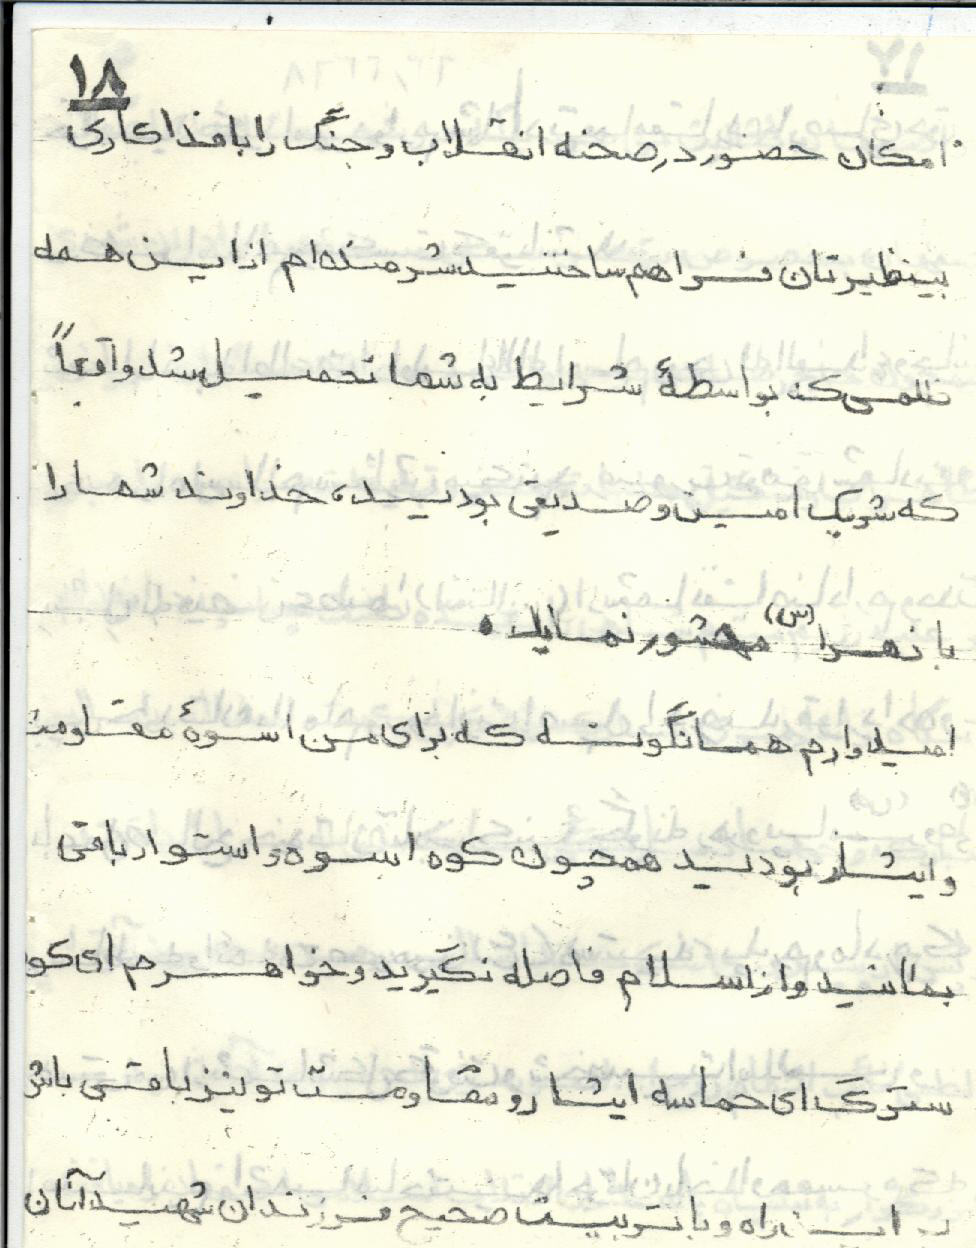 ۱۸
امکان حضور در صحنه انقلاب و جنگ را با فداکاری
بینظیرتان فراهم ساختید شرمنده‌ام از این همه
ظلمی که بواسطهٔ شرایط به شما تحمیل شد واقعاً
که شریک امین و صدیقی بودید، خداوند شما را
با زهرا (س) محشور نماید.
امیدوارم همانگونه که برای من اسوهٔ مقاومت
و ایثار بودید همچون کوه اسوه و استوار باقی
بمانید و از اسلام فاصله نگیرید و خواهرم ای کو
سترگ ای حماسه ایثار و مقاومت تو نیز باقی باش
راه و با تربیت صحیح فرزندان شهید آنان